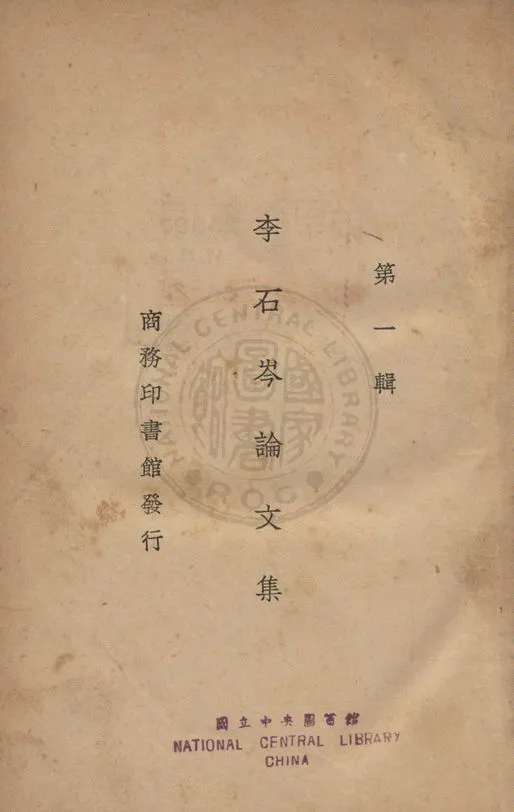 第一輯
李石岑論文集
商務印書館發行
NATIONAL CENTRAL LIBRARY
國家圖書館
ROC
國立中央圖書館
NATIONAL CENTRAL LIBRARY
CHINA